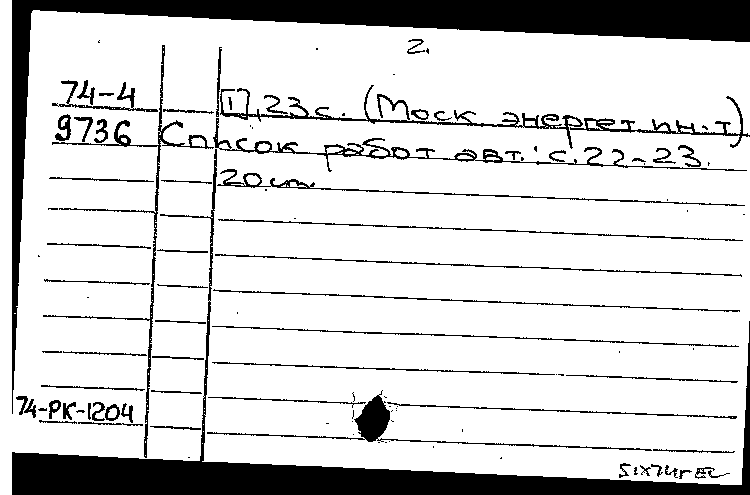 2.
74-4 [1], 23 с. (Моск энергет. ин-т)
9736 Список работ авт.: с. 22-23.
20 cm.
74-РК-1204